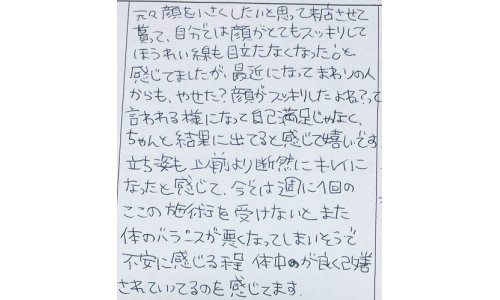 元々顔を小さくしたいと思って来店させて
貰って、自分では顔がとてもスッキリして
ほうれい線も目立たなくなったなと
感じてましたが、最近になってまわりの人
からも、やせた?顔がスッキリしたよね?って
言われる様になって自己満足じゃなく、
ちゃんと結果に出てると感じて嬉しいです
立ち姿も以前より断然にキレイに
なったと感じて、今では週に1回の
ここの施術を受けないとまた
体のバランスが悪くなってしまいそうで
不安に感じる程 体中が良く改善
されていってるのを感じてます。